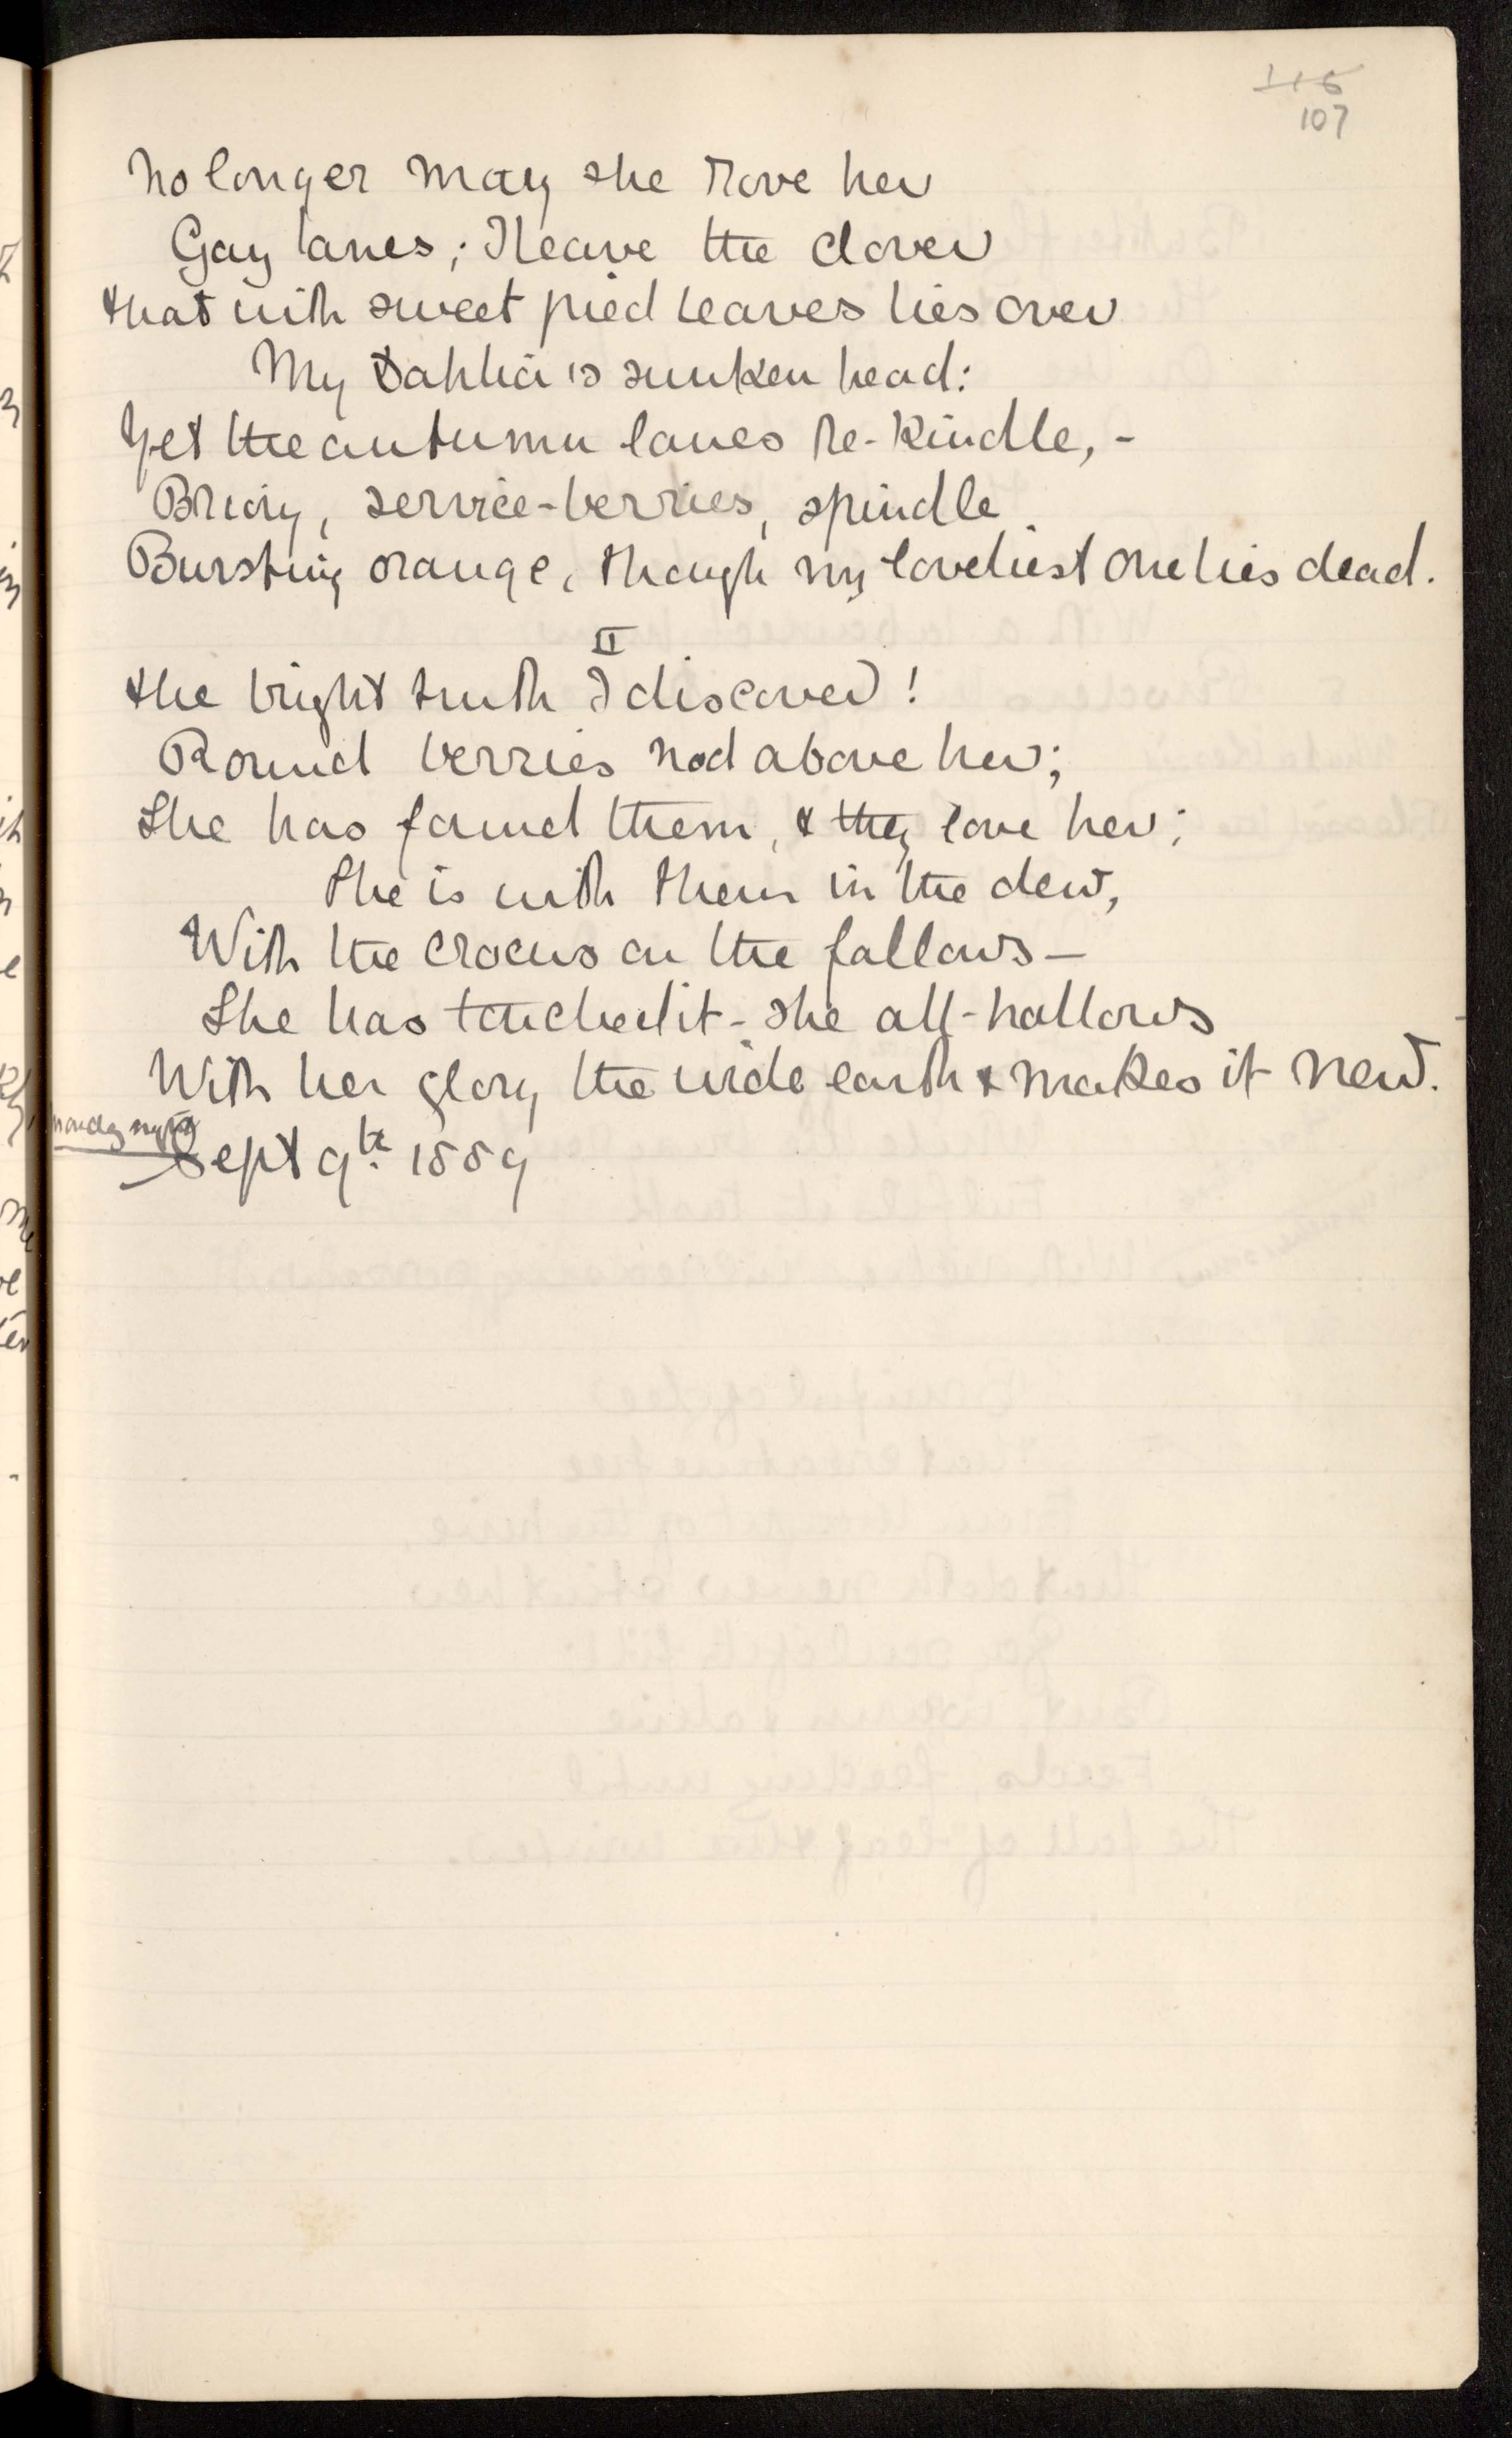 116
107
No longer may she rove her
Gay lanes; I leave the clover
That with sweet pied leaves lies over
My Dahlia's sunken head:
Yet the autumn lanes re-kindle, -
Briony, service-berries, spindle
Bursting orange, though my loveliest one lies dead.
II
The bright truth I discover!
Round berries nod above her;
She has found them, & they love her;
She is with them in the dew,
With the crocus on the fallows —
She has touched it - she all-hallows
With her glory the wide earth & makes it new.
Monday night
Sept 9th. 1889